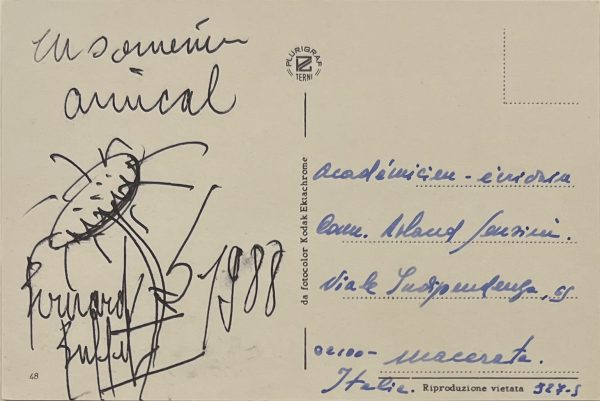 en souvenir
amical
Bernard
Buffet
1988
PLURIGRAF
TERNI
da fotocolor Kodak Ektachrome
Académicien -
Com. Roland Sensini.
Viale Indipendenza, 55
02100- Macerata.
Italie.
Riproduzione vietata 327-S
48